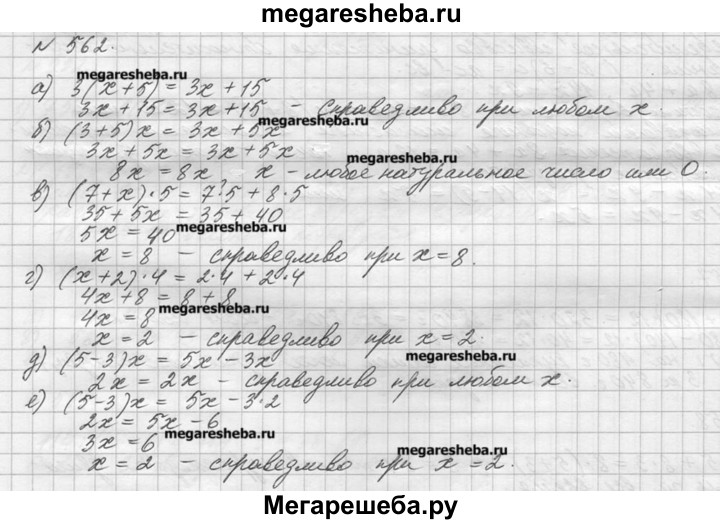 megaresheba.ru
№ 562.
megaresheba.ru
а) 3(x+5) = 3x+15
3x+15 = 3x+15 – справедливо при любом x.
б) (3+5)x = 3x+5x
megaresheba.ru
3x+5x = 3x+5x
megaresheba.ru
8x = 8x x – любое натуральное число или 0.
в) (7+x)·5 = 7·5+8·5
35+5x = 35+40
5x = 40
megaresheba.ru
x = 8 – справедливо при x=8.
г) (x+2)·4 = 2·4+2·4
4x+8 = 8+8
4x = 8
megaresheba.ru
x = 2 – справедливо при x=2.
д) (5-3)x = 5x-3x
megaresheba.ru
2x = 2x – справедливо при любом x.
е) (5-3)x = 5x-3·2
2x = 5x-6
3x = 6
megaresheba.ru
megaresheba.ru
x = 2 – справедливо при x=2.
Мегарешеба.ру